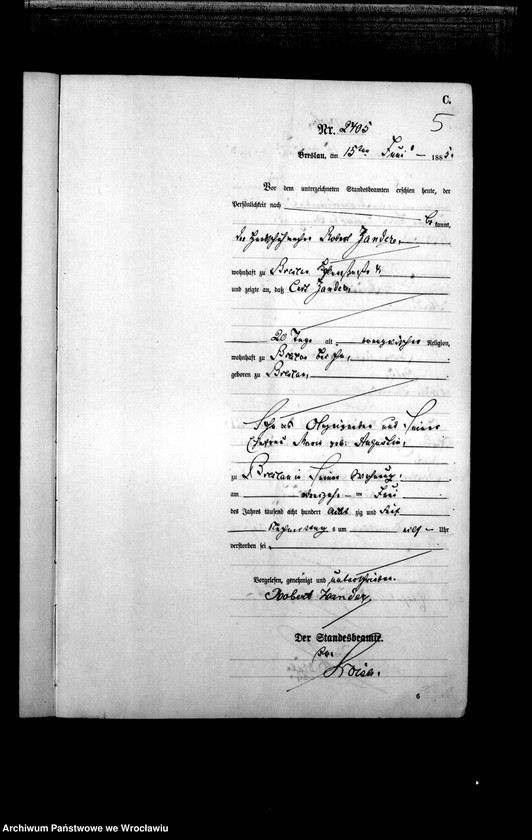 C.
5
Nr. 2705
Breslau, am 15ten Juni 1885.
Vor dem unterzeichneten Standesbeamten erschien heute, der
Persönlichkeit nach
be kannt,
der Handschuhmacher Robert Zander,
wohnhaft zu Breslau
und zeigte an, daß Carl Zander,
20 Tage alt, evangelischer Religion,
wohnhaft zu Breslau bei ihm,
geboren zu Breslau,
Sohn des Anzeigenden und seiner
Ehefrau geb. Augustin,
zu Breslau in seiner Wohnung,
am vierzehn ten Juni
des Jahres tausend acht hundert acht zig und fünf
Nachmittags um elf Uhr
verstorben sei.
Vorgelesen, genehmigt und unterschrieben.
Robert Zander
Der Standesbeamte.
6
Archiwum Państwowe we Wrocławiu